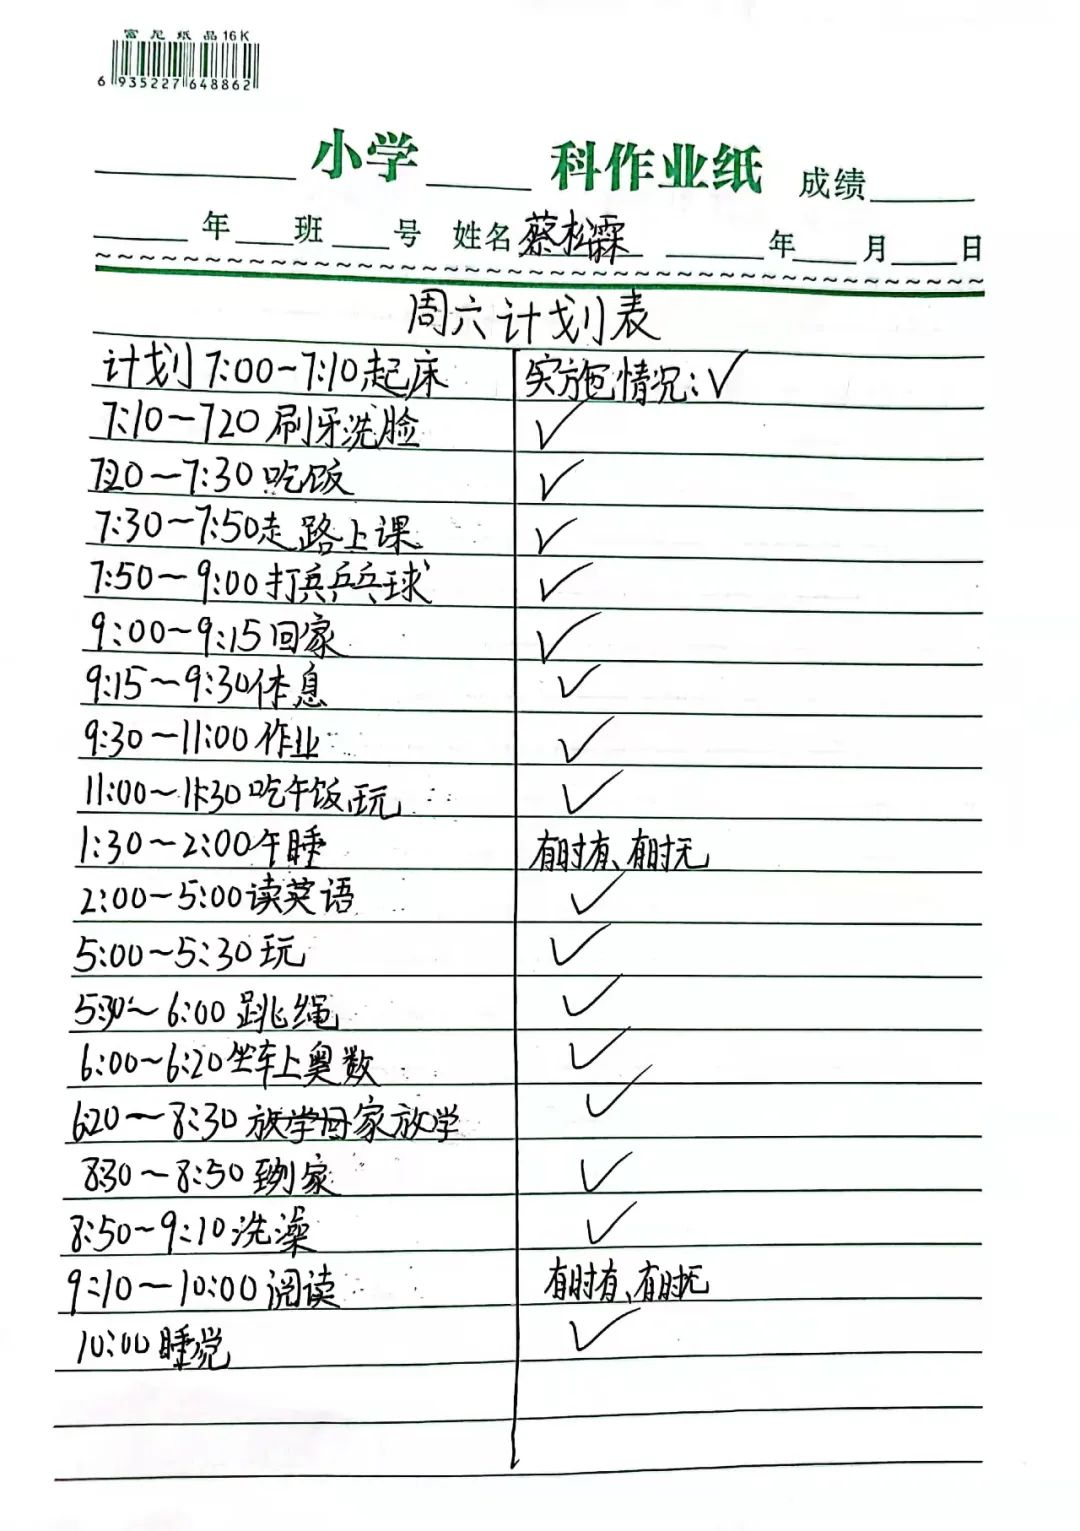 富尼纸品16K
6 935227 648862
小学 科作业纸 成绩
年 班 号 姓名 蔡松霖 年 月 日
周六计划表
计划 7:00~7:10起床 实施情况:✓
7:10~720刷牙洗脸 ✓
720~7:30吃饭 ✓
7:30~7:50走路上课 ✓
7:50~9:00打兵乒乓球 ✓
9:00~9:15回家 ✓
9:15~9:30休息 ✓
9:30~11:00作业 ✓
11:00~1:30吃午饭,玩 ✓
1:30~2:00午睡 有时有、有时无
2:00~5:00读英语 ✓
5:00~5:30玩 ✓
5:30~6:00跳绳 ✓
6:00~6:20坐车上奥数 ✓
620~8:30放学回家放学 ✓
830~8:50到家 ✓
8:50~9:10洗澡 ✓
9:10~10:00阅读 有时有、有时无
10:00睡觉 ✓